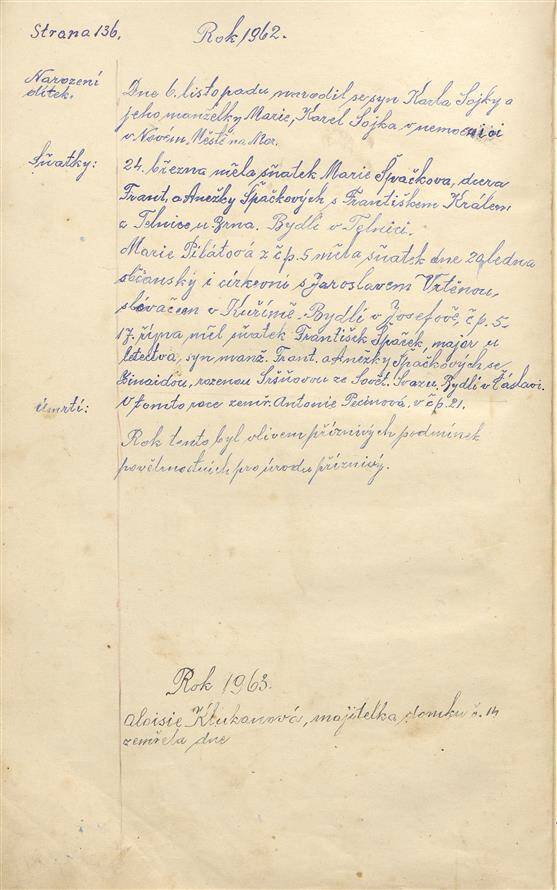 Strana 136.
Rok 1962.
Narození
dítek.
Dne 6. listopadu narodil se syn Karla Sojky a
jeho manželky Marie, Karel Sojka v nemocnici
v Novém Městě na Mor.
Sňatky:
24. března měla sňatek Marie Špačkova, dcera
Frant. a Anežky Špačkových s Františkem Králem
z Telnice u Brna. Bydlí v Telnici.
Marie Pilátová z čp. 5 měla sňatek dne 20. ledna
občanský i církevní s Jaroslavem Vrtěnou,
slévačem v Kuřimě. Bydlí v Josefově, čp. 5.
17. října měl sňatek František Špaček, major u
letectva, syn manž. Frant. a Anežky Špačkových se
Zinaidou, rozenou Sršňovou ze Sovět. Svazu. Bydlí v Čáslavi.
Úmrtí:
V tomto roce zemř. Antonie Pecinová, v čp. 21.
Rok tento byl vlivem příznivých podmínek
povětrnostních pro úrodu příznivý.
Rok 1963.
Aloisie Klukanová, majitelka domku č. 14
zemřela dne